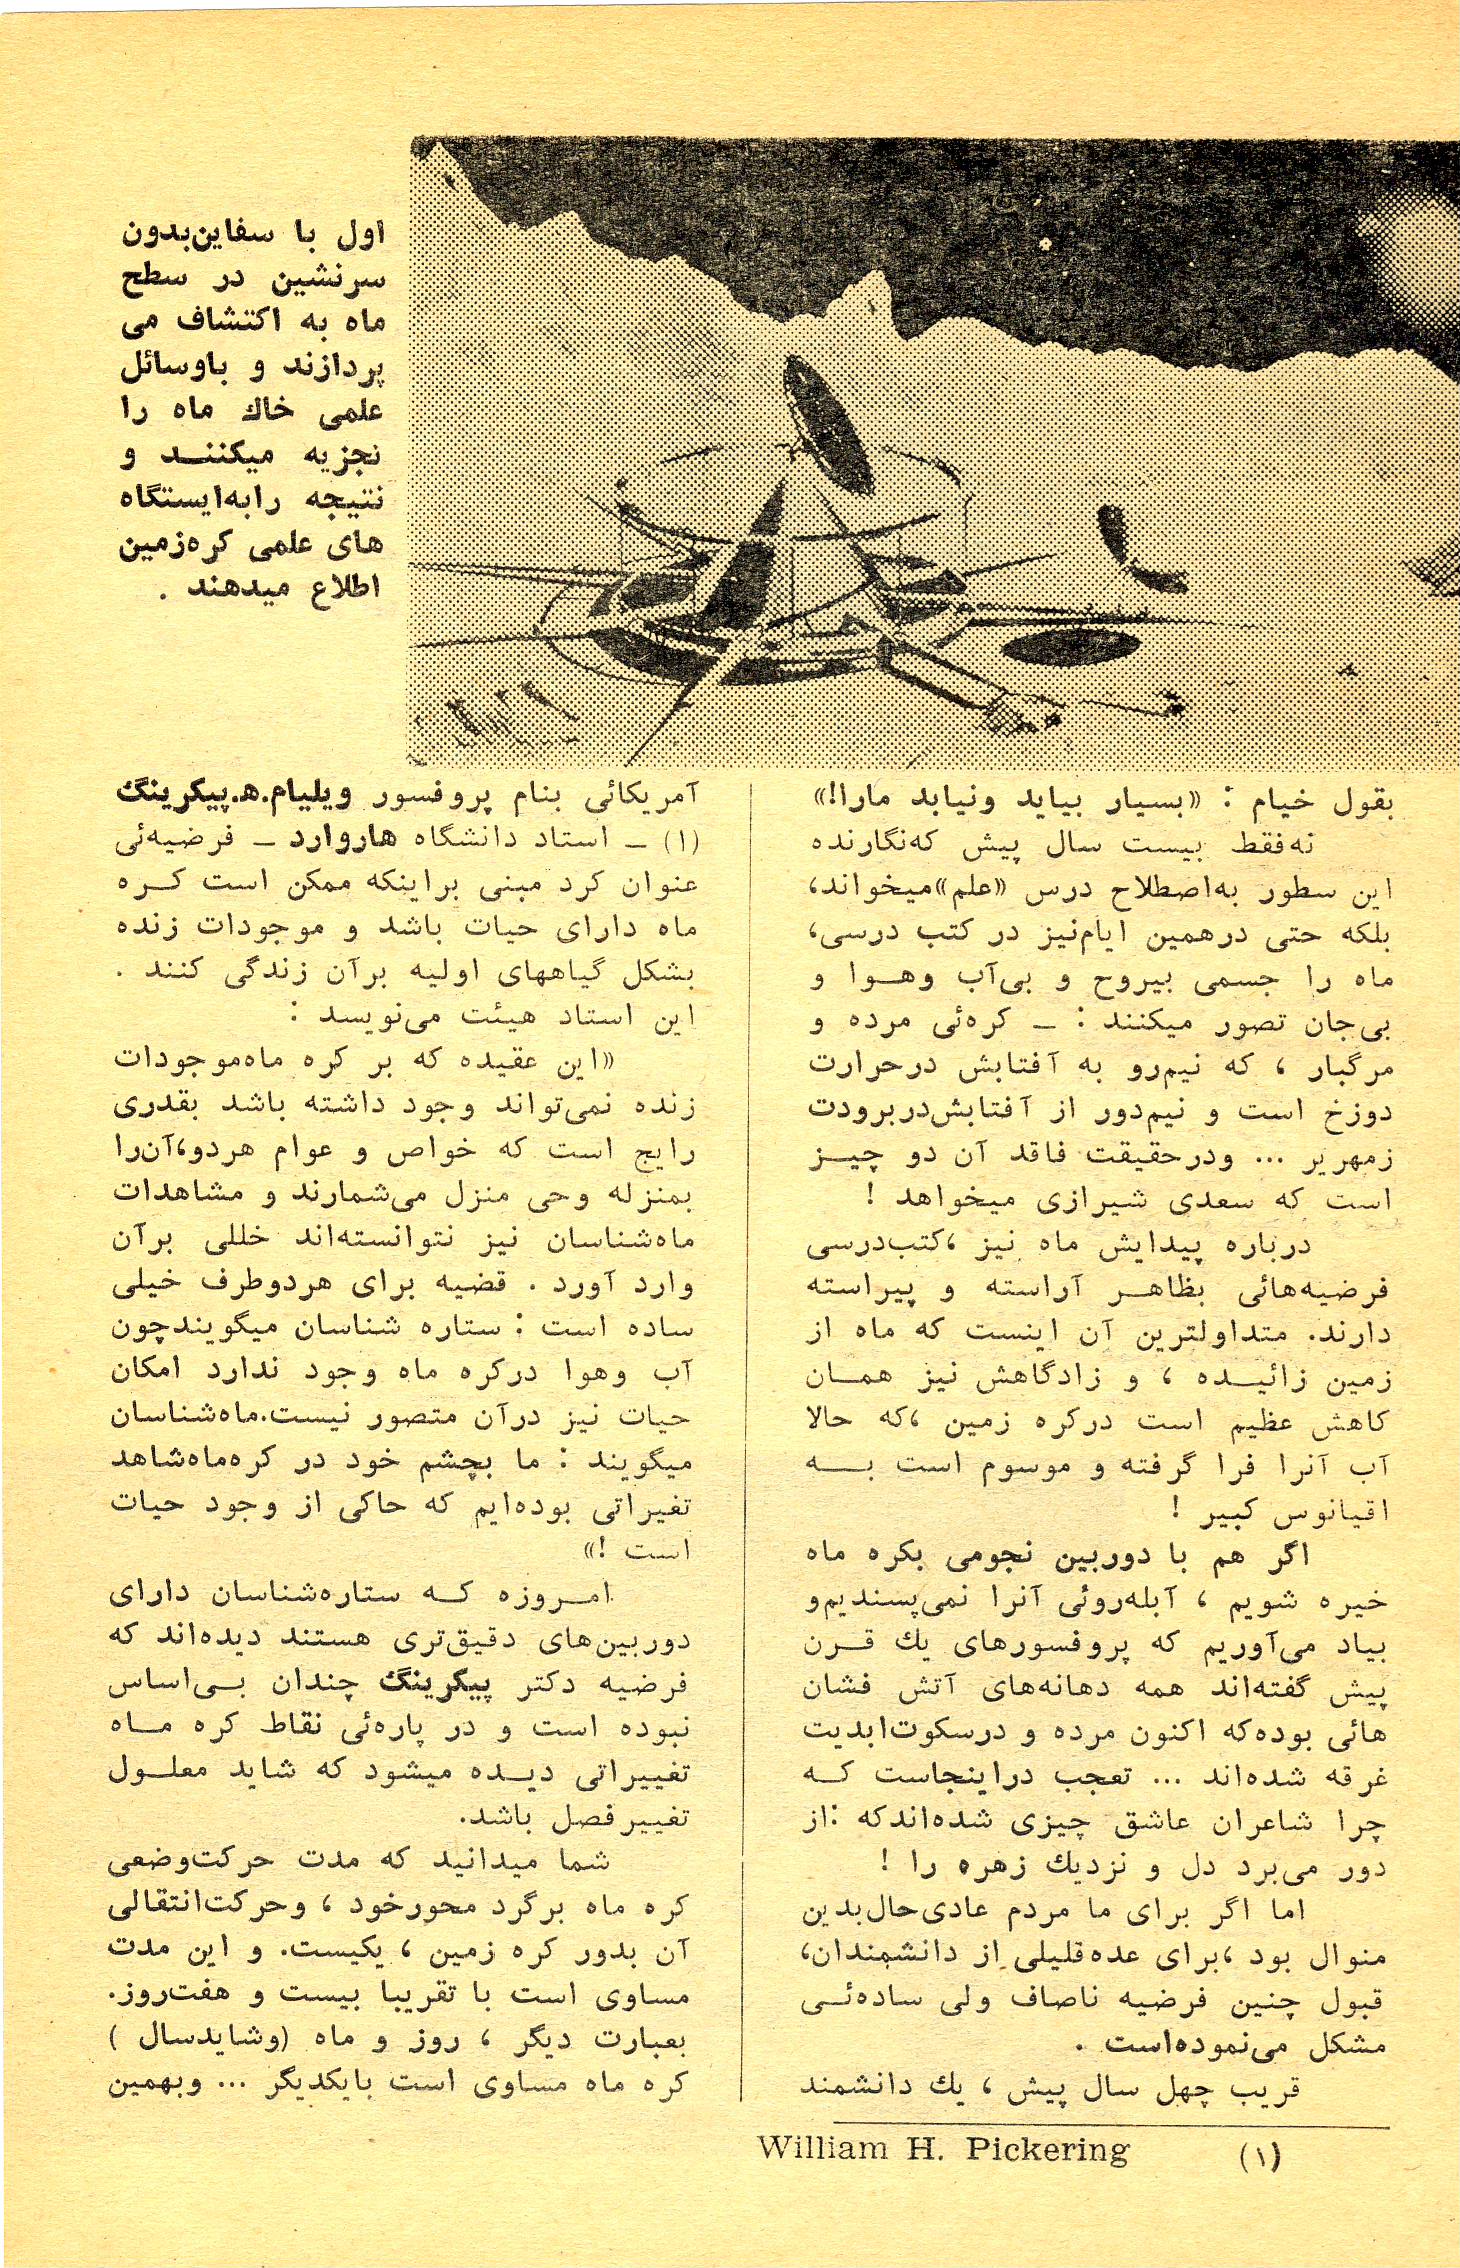 اول با سفاین‌بدون
سرنشین در سطح
ماه به اکتشاف می
پردازند و باوسائل
علمی خاك ماه را
تجزیه میکننـد و
نتیجه رابه‌ایستگاه
های علمی کره‌زمین
اطلاع میدهند .
بقول خیام : «بسیار بیاید ونیابد مارا!»
نه‌فقط بیست سال پیش که‌نگارنده
این سطور به‌اصطلاح درس «علم»میخواند،
بلکه حتی درهمین ایام‌نیز در کتب درسی،
ماه را جسمی بیروح و بی‌آب وهـوا و
بی‌جان تصور میکنند : ـ کره‌ئی مرده و
مرگبار ، که نیم‌رو به آفتابش درحرارت
دوزخ است و نیم‌دور از آفتابش‌دربرودت
زمهریر ... ودرحقیقت فاقد آن دو چیـز
است که سعدی شیرازی میخواهد !
درباره پیدایش ماه نیز ،کتب‌درسی
فرضیه‌هائی بظاهـر آراسته و پیراسته
دارند. متداولترین آن اینست که ماه از
زمین زائیـده ، و زادگاهش نیز همـان
کاهش عظیم است درکره زمین ،که حالا
آب آنرا فرا گرفته و موسوم است بـه
اقیانوس کبیر !
اگر هم با دوربین نجومی بکره ماه
خیره شویم ، آبله‌روئی آنرا نمی‌پسندیم‌و
بیاد می‌آوریم که پروفسورهای یك قـرن
پیش گفته‌اند همه دهانه‌های آتش فشان
هائی بوده‌که اکنون مرده و درسکوت‌ابدیت
غرقه شده‌اند ... تعجب دراینجاست کـه
چرا شاعران عاشق چیزی شده‌اندکه :از
دور می‌برد دل و نزدیك زهره را !
اما اگر برای ما مردم عادی‌حال‌بدین
منوال بود ،برای عده‌قلیلی از دانشمندان،
قبول چنین فرضیه ناصاف ولی ساده‌ئـی
مشکل می‌نموده‌است .
قریب چهل سال پیش ، یك دانشمند
آمریکائی بنام پروفسور ویلیام.ه‍.پیکرینگ
(۱) ـ استاد دانشگاه هاروارد ـ فرضیه‌ئی
عنوان کرد مبنی براینکه ممکن است کـره
ماه دارای حیات باشد و موجودات زنده
بشکل گیاههای اولیه برآن زندگی کنند .
این استاد هیئت می‌نویسد :
«این عقیده که بر کره ماه‌موجودات
زنده نمی‌تواند وجود داشته باشد بقدری
رایج است که خواص و عوام هردو،آن‌را
بمنزله وحی منزل می‌شمارند و مشاهدات
ماه‌شناسان نیز نتوانسته‌اند خللی برآن
وارد آورد . قضیه برای هردوطرف خیلی
ساده است : ستاره شناسان میگویندچون
آب وهوا درکره ماه وجود ندارد امکان
حیات نیز درآن متصور نیست.ماه‌شناسان
میگویند : ما بچشم خود در کره‌ماه‌شاهد
تغیراتی بوده‌ایم که حاکی از وجود حیات
است !»
امـروزه کـه ستاره‌شناسان دارای
دوربین‌های دقیق‌تری هستند دیده‌اند که
فرضیه دکتر پیگرینگ چندان بـی‌اساس
نبوده است و در پاره‌ئی نقاط کره مـاه
تغییراتی دیـده میشود که شاید معلـول
تغییرفصل باشد.
شما میدانید که مدت حرکت‌وضعی
کره ماه برگرد محورخود ، وحرکت‌انتقالی
آن بدور کره زمین ، یکیست. و این مدت
مساوی است با تقریبا بیست و هفت‌روز.
بعبارت دیگر ، روز و ماه (وشایدسال )
کره ماه مساوی است بایکدیگر ... وبهمین
(۱) William H. Pickering